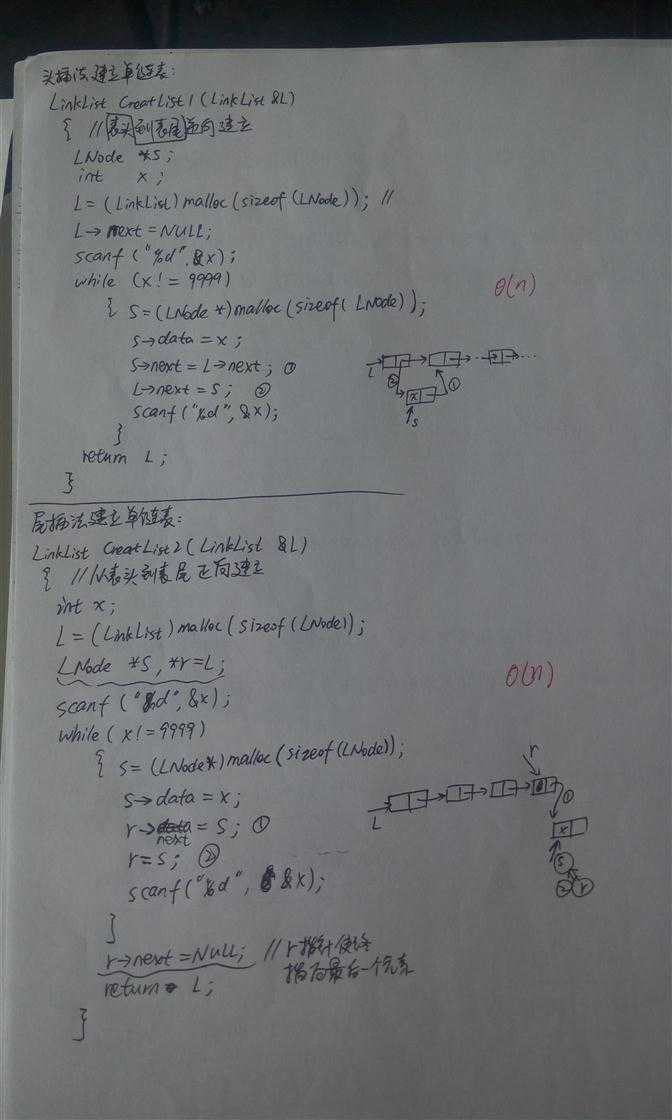 头插法建立单链表:
LinkList CreatList1(LinkList &L)
{ //表头到表尾逆向建立
LNode *s;
int x;
L=(LinkList)malloc(sizeof(LNode)); //
L→next=NULL;
scanf("%d",&x);
while (x!=9999)
{ s=(LNode*)malloc(sizeof(LNode));
s→data=x;
s→next=L→next; ①
L→next=s; ②
scanf("%d",&x);
}
return L;
}
θ(n)
L
②
x
①
s
尾插法建立单链表:
LinkList CreatList2(LinkList &L)
{ //从表头到表尾正向建立
int x;
L=(LinkList)malloc(sizeof(LNode));
LNode *s,*r=L;
scanf("%d",&x);
while(x!=9999)
{ s=(LNode*)malloc(sizeof(LNode));
s→data=x;
r→next=s; ①
r=s; ②
scanf("%d",&x);
}
r→next=NULL; //r指针使终
指向最后一个元素
return L;
}
θ(n)
r
L
①
x
s
② r